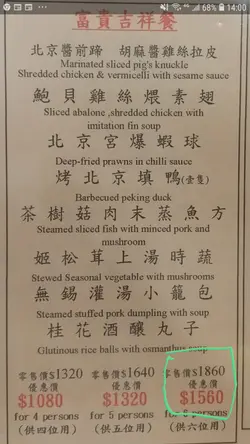 68% 14:00
富貴吉祥餐
北京醬前蹄 胡麻醬雞絲拉皮
Marinated sliced pig's knuckle
Shredded chicken & vermicelli with sesame sauce
鮑貝雞絲煨素翅
Sliced abalone ,shredded chicken with
imitation fin soup
北京宮爆蝦球
Deep-fried prawns in chilli sauce
烤北京填鴨(壹隻)
Barbecued peking duck
茶樹菇肉末蒸魚方
Steamed sliced fish with minced pork and
mushroom
姬松茸上湯時蔬
Stewed Seasonal vegetable with mushrooms
無錫灌湯小籠包
Steamed stuffed pork dumpling with soup
桂花酒釀丸子
Glutinous rice balls with osmanthus soup
零售價$1320 零售價$1640 零售價$1860
優惠價 優惠價 優惠價
$1080 $1320 $1560
for 4 persons for 5 persons for 6 persons
(供四位用) (供五位用) (供六位用)